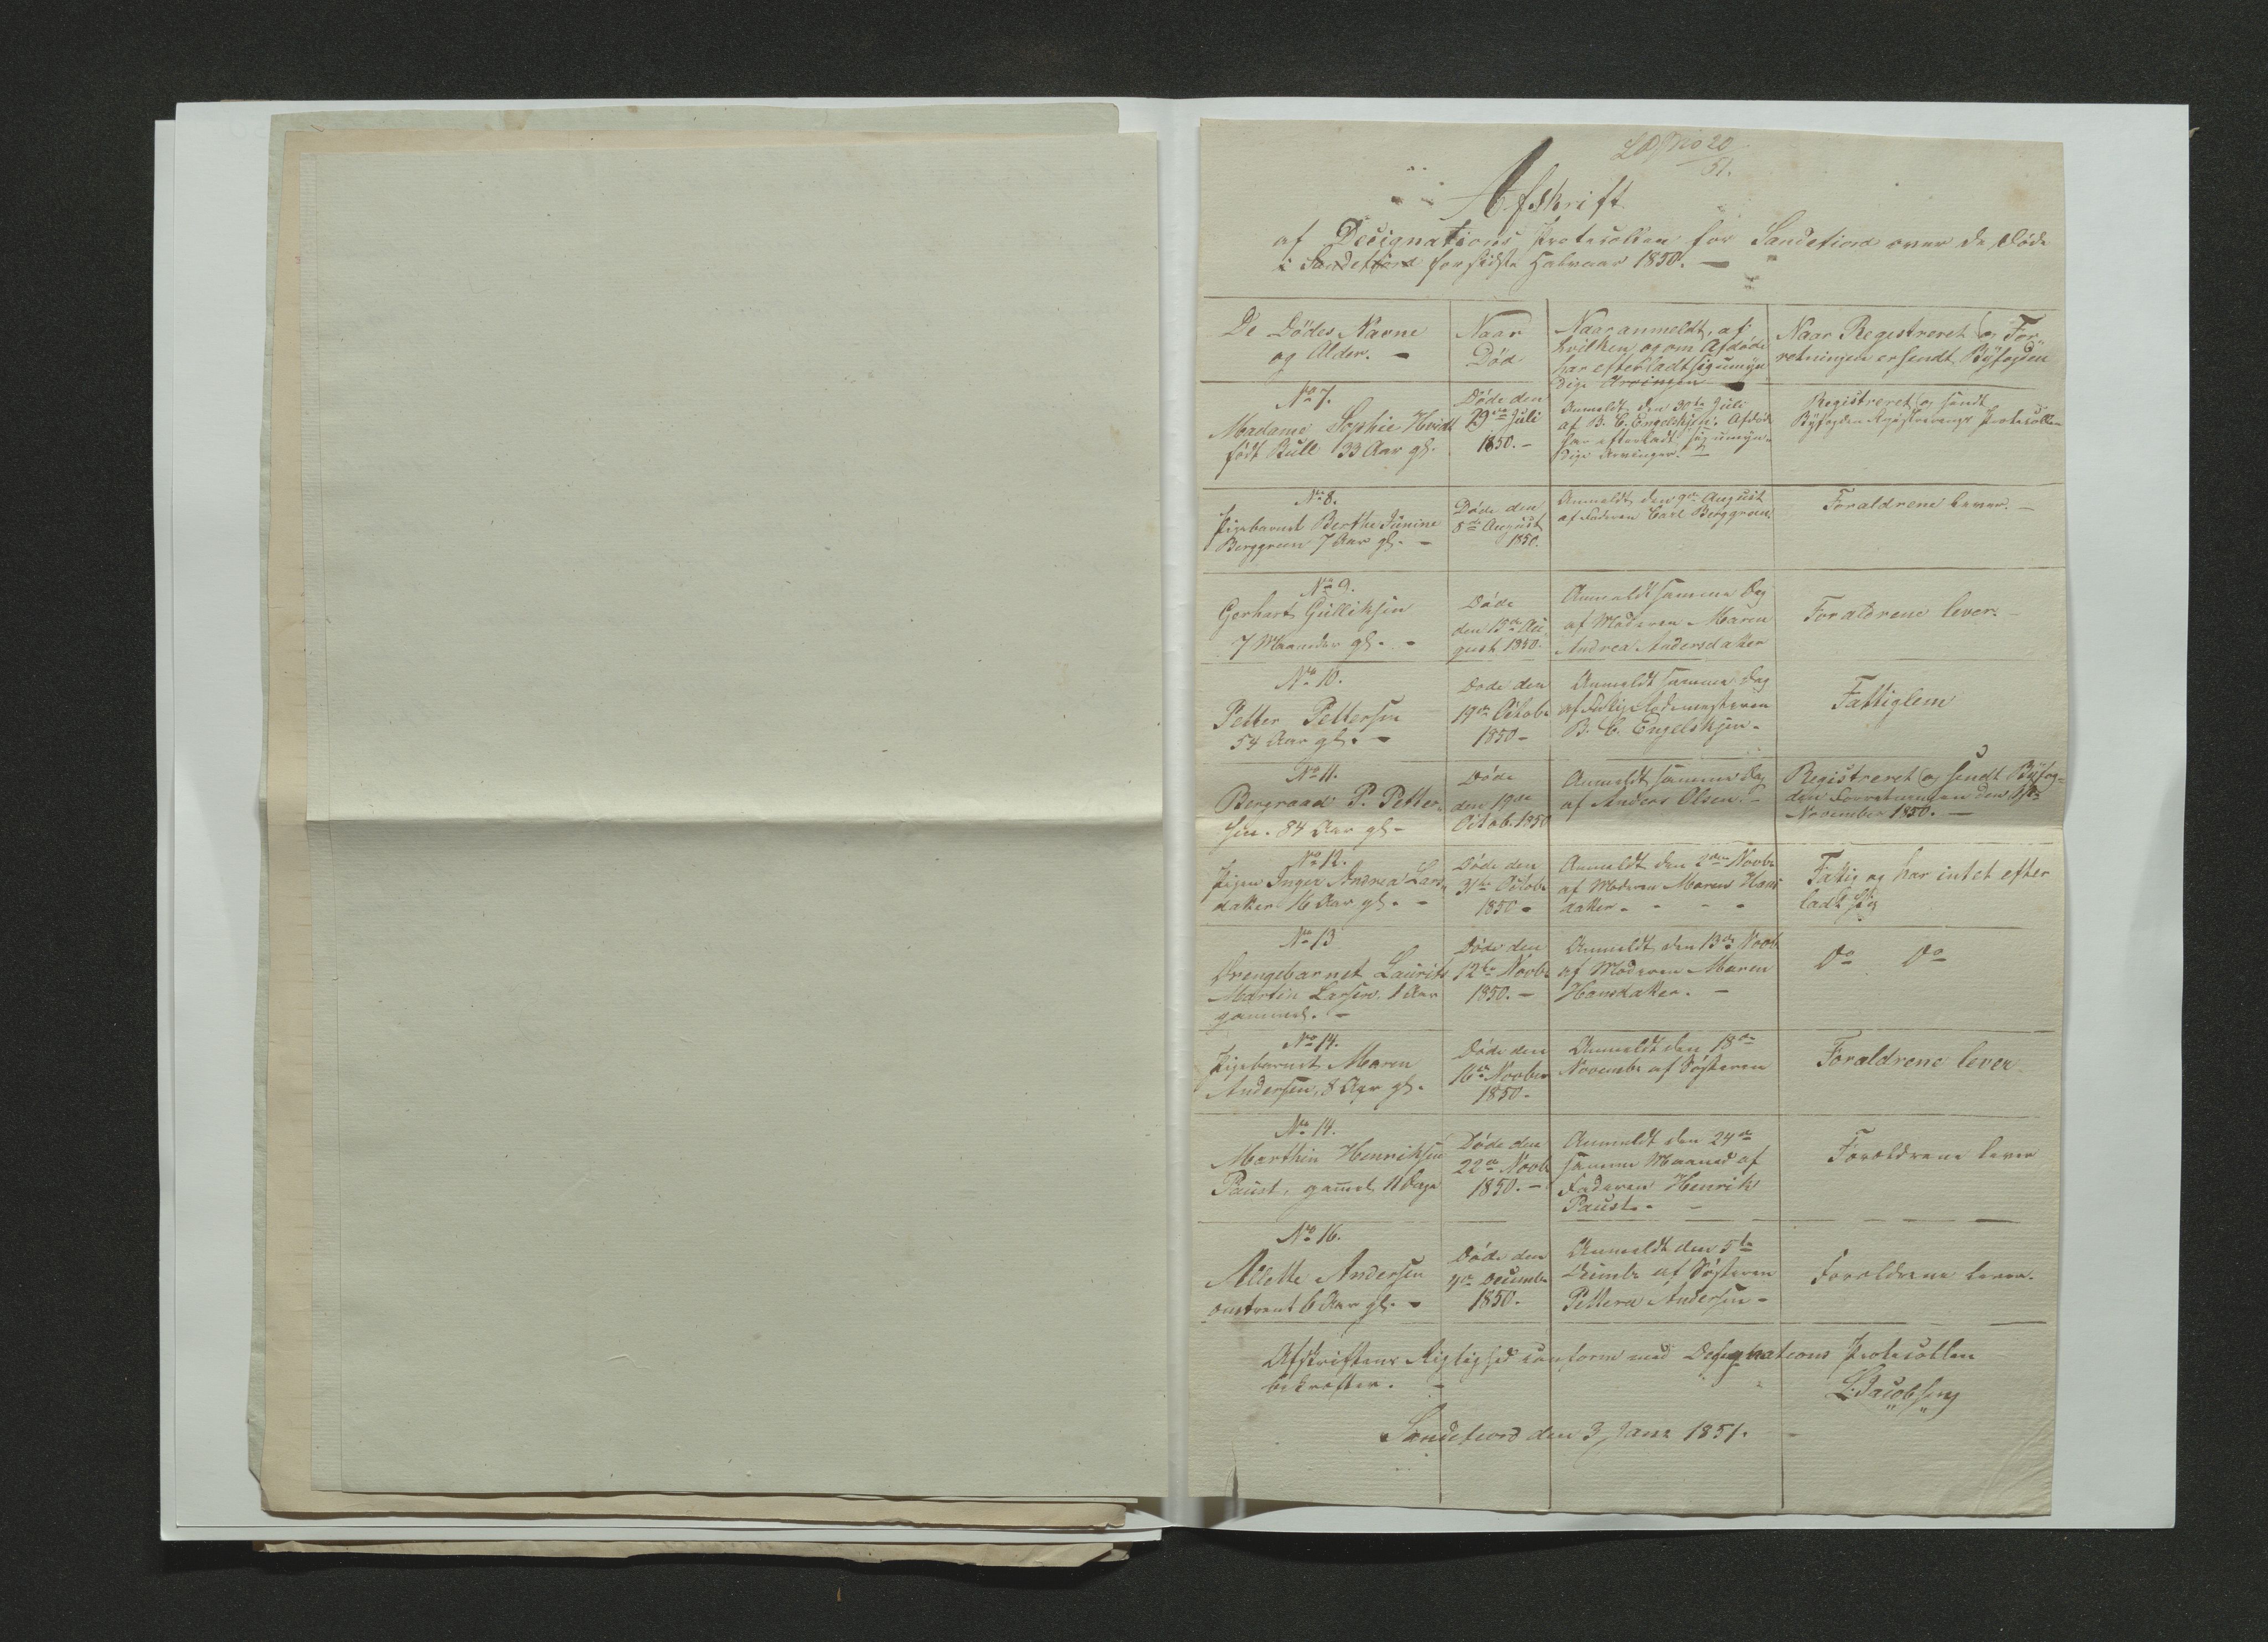 No 20
51.
Afskrift
af Decignations Protocollen for Sandefiord over de Døde
i Sandefiord for sidste Halvaar 1850. —
De Dödes Navne
og Alder. —
Naar
Død
Naar anmeldt, af
hvilken og om Afdøde
har efterladt sig umyn
dige Arvinger —
Naar Registreret og For-
retningen er sendt Byfogden
No 7.
Madame Sophie Hvidt
født Bull 33 Aar gl.
Døde den
29de Juli
1850. —
Anmeldt den 30te Juli
af B. C. Engelskjøn. Afdøde
har efterladt sig umyn-
dige Arvinger. —
Registreret og sendt
Byfogden Registrerings Protocollen
No 8.
Pigebarnet Berthe Junine
Berggreen 7 Aar gl. —
Døde den
8de August
1850.
Anmeldt den 9de August
af Faderen Carl Berggreen
Foraldrene lever. —
No 9.
Gerhart Gulliksen
7 Maaneder gl. —
Døde
den 15de Au
gust 1850.
Anmeldt samme Dag
af Moderen Maren
Andrea Andersdatter
Foraldrene lever. —
No 10.
Petter Pettersen
54 Aar gl. —
Døde den
19de Octob
1850 —
Anmeldt samme Dag
af
B. C. Engelskjøn —
Fattiglem
No 11.
Bergraad P. Petter-
sen. 84 Aar gl —
Døde
den 19de
Octob. 1850
Anmeldt samme Dag
af Anders Olsen. —
Registreret og sendt Byfog-
den Forretningen den
November 1850. —
No 12.
Pigen Inger Andrea Lars
datter 16 Aar gl. —
Døde den
31te Octob
1850 —
Anmeldt den 2den Novbr
af Moderen Maren Hans
datter — — — —
Fatig og har intet efter
ladt sig
No 13
Drengebarnet Laurits
Martin Larsen. 1 Aar
gammel. —
Døde den
12te Novbr
1850. —
Anmeldt den 13de Novb
af Moderen Maren
Hansdatter. —
Do Do
No 14.
Pigebarnet Maren
Andersen, 8 Aar gl.
Døde den
16de Novber
1850 —
Anmeldt den 18de
Novembr af Søsteren
Foraldrene lever
No 14.
Marthin Henriksen
Paust, gamel 11 Dage
Døde den
22de Novb
1850. —
Anmeldt den 24de
samme Maaned af
Faderen Henrik
Paust. —
Foroldrene lever
No 16.
Allette Andersen
omtrent 6 Aar gl. —
Døde den
4de Decembr
1850.
Anmeldt den 5te
Decembr af Søsteren
Pettera Andersen —
Foroldrene lever.
Afskriftens Rigtighed conform med Designations Protocollen
bekræfter. —
L. Jacobsen
Sandefiord den 3 Janr 1851. —